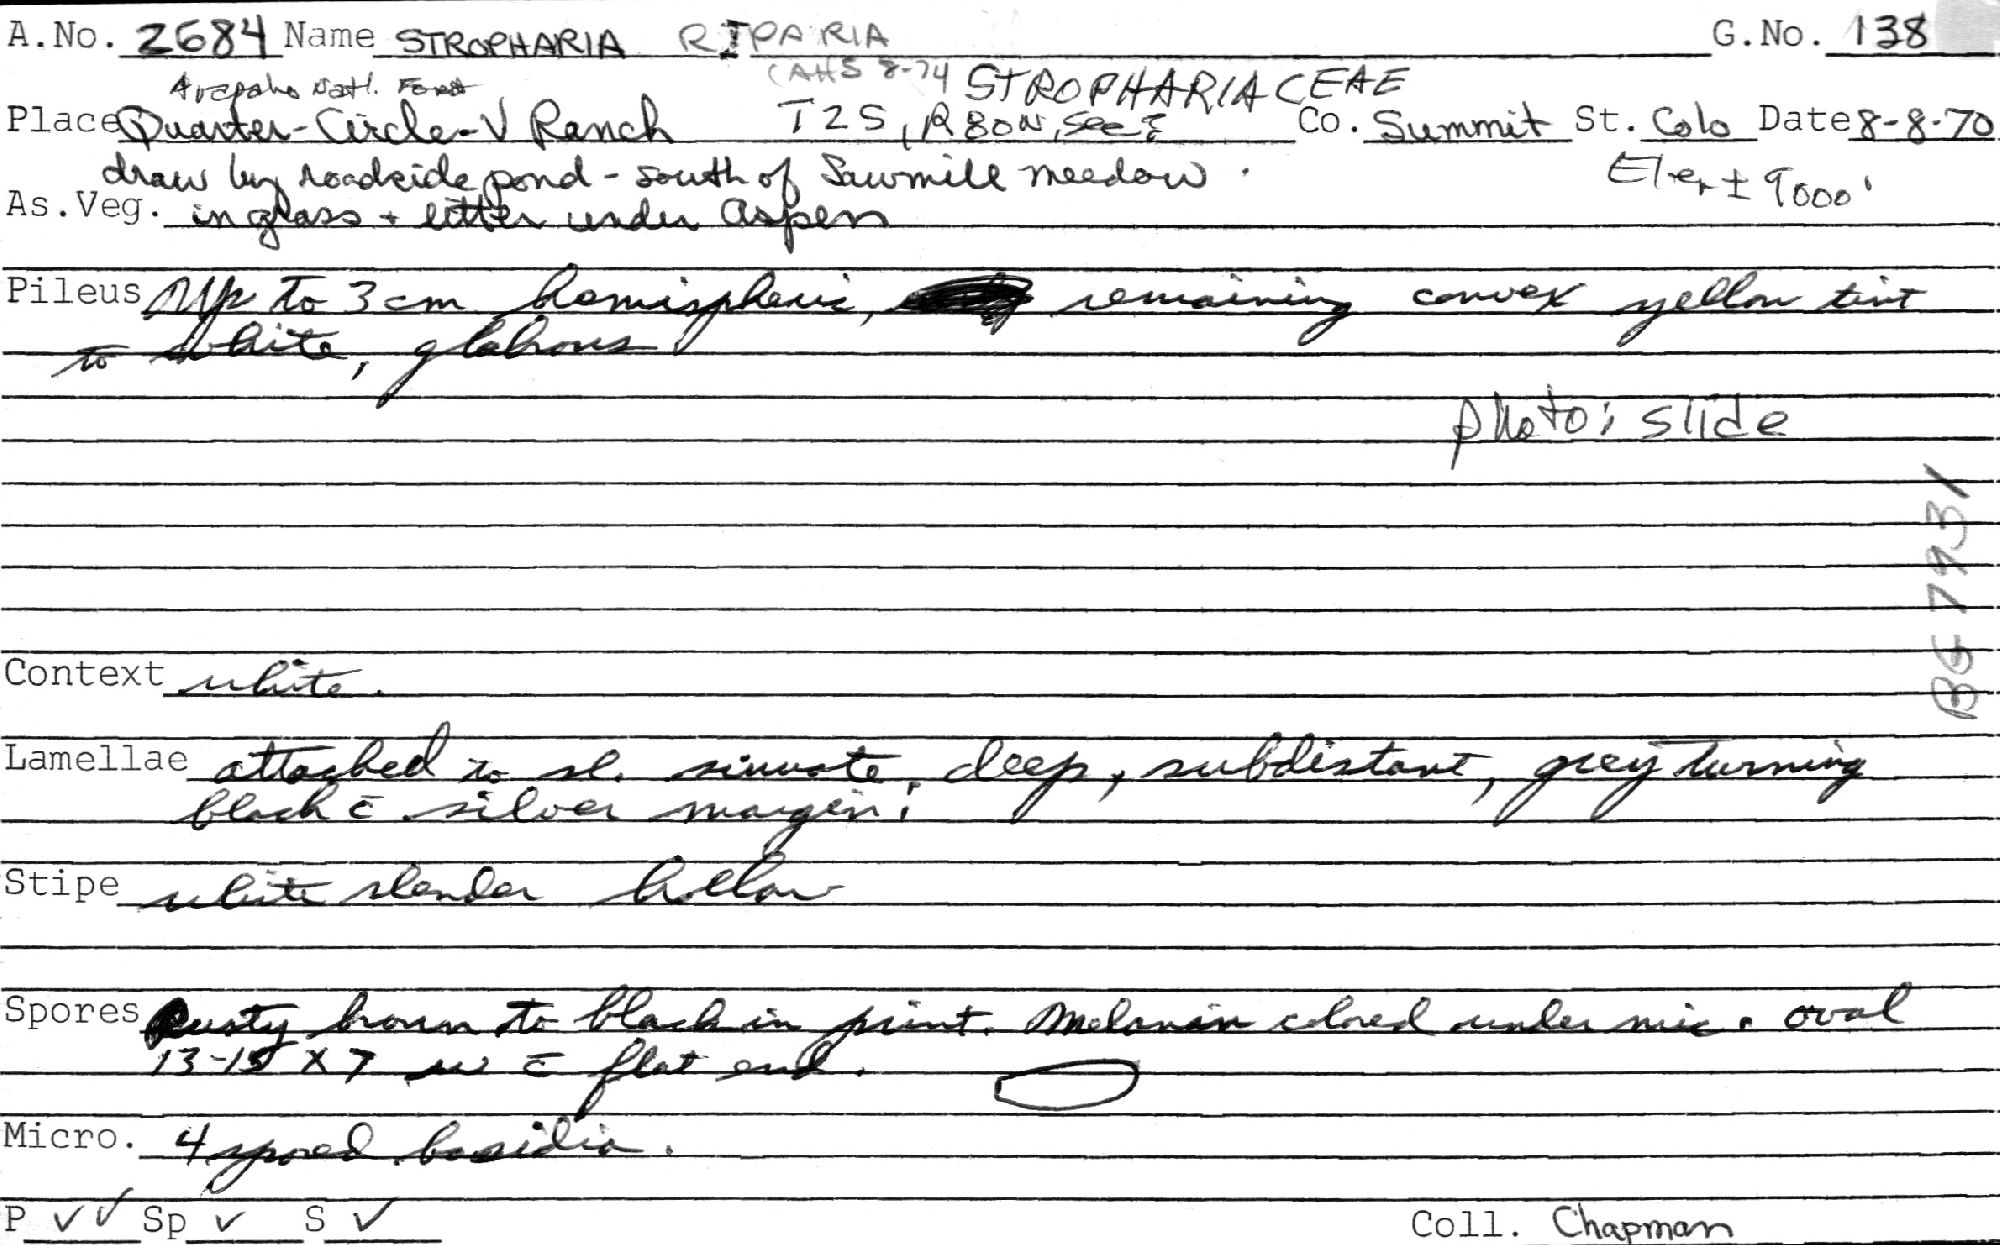 A.No. 2684 Name STROPHARIA RIPARIA G.No. 138
(AHS 8-74 STROPHARIACEAE
Arapaho Natl. Forest
Place Quarter-Circle-V Ranch T2S, R80W, Sec? Co. Summit St. Colo Date 8-8-70
draw by roadside pond - south of Sawmill meadow. Elev ± 9000'
As.Veg. in grass + litter under Aspen
Pileus Up to 3 cm hemispheric, remaining convex yellow tint
to white, glabrous
photo: slide
BG 7931
Context white.
Lamellae attached to sl. sinuate, deep, subdistant, grey turning
black c̄ silver margin.
Stipe white slender hollow
Spores Rusty brown to black in print. Melanin colored under mic. oval
13-15 x 7 c̄ flat end.
Micro. 4 spored basidia.
P ✓✓ Sp ✓ S ✓ Coll. Chapman